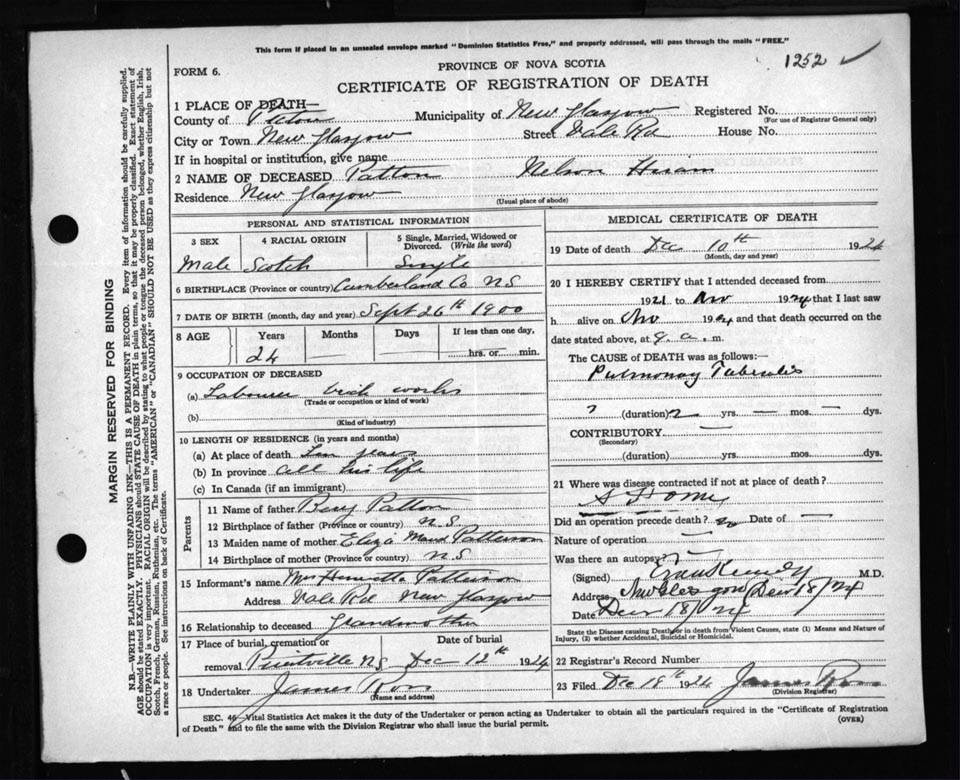 This form if placed in an unsealed envelope marked "Dominion Statistics Free," and properly addressed, will pass through the mails "FREE."
1252 ✓
PROVINCE OF NOVA SCOTIA
FORM 6.
CERTIFICATE OF REGISTRATION OF DEATH
1 PLACE OF DEATH—
County of Pictou Municipality of New Glasgow Registered No.
(For use of Registrar General only)
City or Town New Glasgow Street Vale Rd House No.
If in hospital or institution, give name
2 NAME OF DECEASED Patton Nelson Hiram
Residence New Glasgow
(Usual place of abode)
PERSONAL AND STATISTICAL INFORMATION
3 SEX 4 RACIAL ORIGIN 5 Single, Married, Widowed or Divorced. (Write the word)
Male Scotch Single
6 BIRTHPLACE (Province or country) Cumberland Co N.S
7 DATE OF BIRTH (month, day and year) Sept 26th 1900
8 AGE Years Months Days If less than one day,
24 — — hrs. or min.
9 OCCUPATION OF DECEASED
(a) Labourer brick works
(Trade or occupation or kind of work)
(b)
(Kind of industry)
10 LENGTH OF RESIDENCE (in years and months)
(a) At place of death Ten years
(b) In province all his life
(c) In Canada (if an immigrant)
Parents
11 Name of father Benj Patton
12 Birthplace of father (Province or country) N.S
13 Maiden name of mother Eliza Maud Patterson
14 Birthplace of mother (Province or country) N S
15 Informant's name Mrs Henrietta Patterson
Address Vale Rd New Glasgow
16 Relationship to deceased Grandmother
17 Place of burial, cremation or removal Date of burial
N.S. Dec 12th 1924
18 Undertaker James Ross
(Name and address)
MEDICAL CERTIFICATE OF DEATH
19 Date of death Dec 10th 1924
(Month, day and year)
20 I HEREBY CERTIFY that I attended deceased from
1921 to Nov 1924 that I last saw
h alive on Nov 1924 and that death occurred on the
date stated above, at 9 a. m.
The CAUSE OF DEATH was as follows:—
Pulmonay
? (duration) 2 yrs. — mos. — dys.
CONTRIBUTORY —
(Secondary)
(duration) yrs. mos. dys.
21 Where was disease contracted if not at place of death?
Home
Did an operation precede death? no Date of —
Nature of operation —
Was there an autopsy? —
(Signed) M.D.
Address New Glasgow
Date 18/24
State the Disease causing Death or in death from Violent Causes, state (1) Means and Nature of Injury, (2) whether Accidental, Suicidal or Homicidal.
22 Registrar's Record Number
23 Filed Dec 18th 1924 James Ross
(Division Registrar)
SEC. 46—Vital Statistics Act makes it the duty of the Undertaker or person acting as Undertaker to obtain all the particulars required in the "Certificate of Registration
of Death" and to file the same with the Division Registrar who shall issue the burial permit.
(OVER)
MARGIN RESERVED FOR BINDING
N.B.—WRITE PLAINLY WITH UNFADING INK—THIS IS A PERMANENT RECORD. Every item of information should be carefully supplied.
AGE should be stated EXACTLY. PHYSICIANS should STATE CAUSE OF DEATH in plain terms, so that it may be properly classified. Exact statement of
OCCUPATION is very important. RACIAL ORIGIN will be described by stating to what people or tongue the deceased person belonged, whether English, Irish,
Scotch, French, German, Russian, Ruthenian, etc. The terms "AMERICAN" or "CANADIAN" SHOULD NOT BE USED as they express citizenship but not
a race or people. See instructions on back of Certificate.